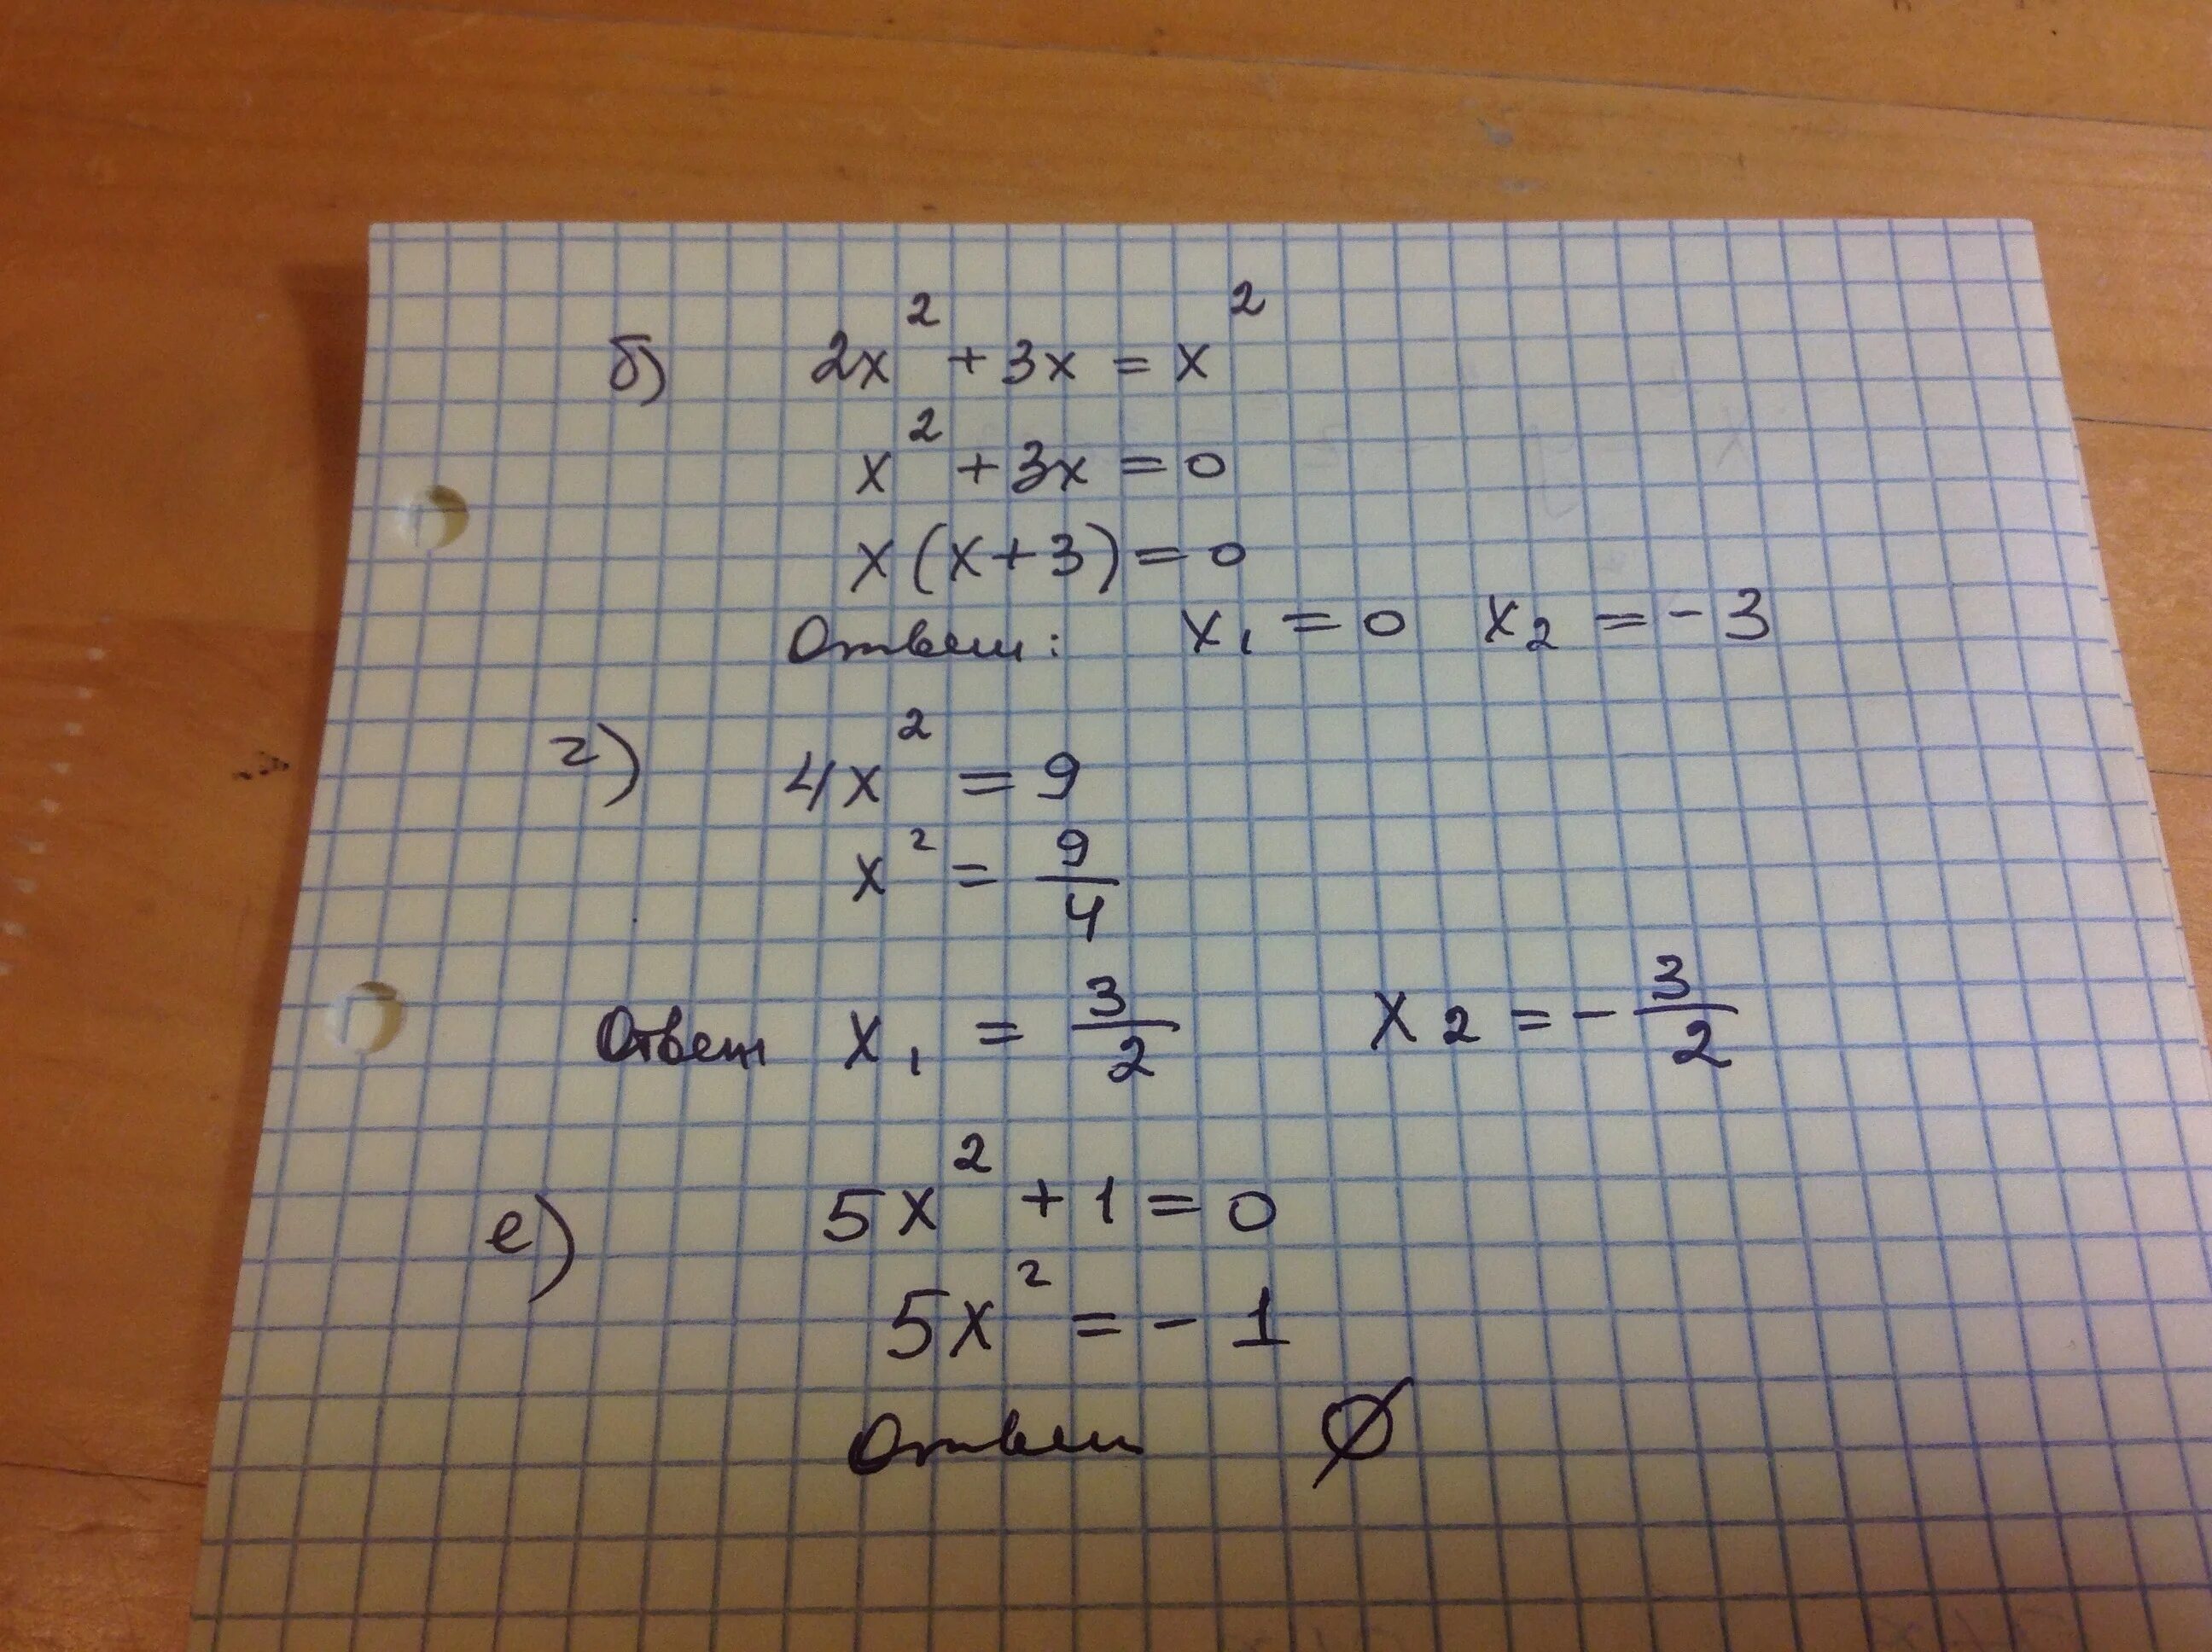 б) 2x² + 3x = x²
x² + 3x = 0
x(x+3) = 0
Ответ: x₁ = 0 x₂ = -3
г) 4x² = 9
x² = 9/4
Ответ x₁ = 3/2 x₂ = -3/2
е) 5x² + 1 = 0
5x² = -1
Ответ ∅